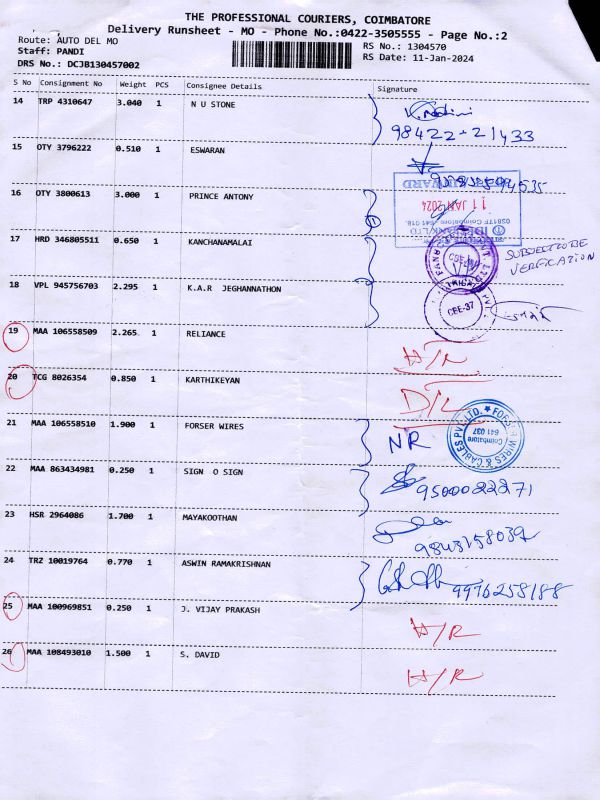 THE PROFESSIONAL COURIERS, COIMBATORE
Delivery Runsheet - MO - Phone No.:0422-3505555 - Page No.:2
Route: AUTO DEL MO
RS No.: 1304570
Staff: PANDI
RS Date: 11-Jan-2024
DRS No.: DCJB130457002
S No Consignment No Weight PCS Consignee Details Signature
14 TRP 4310647 3.040 1 N U STONE
98422-21433
15 OTY 3796222 0.510 1 ESWARAN
16 OTY 3800613 3.000 1 PRINCE ANTONY
11 JAN 2024
17 HRD 346805511 0.650 1 KANCHANAMALAI
SUBJECT TO BE
VERIFICATION
18 VPL 945756703 2.295 1 K.A.R JEGHANNATHON
CBE-37
19 MAA 106558509 2.265 1 RELIANCE
H/R
20 TCG 8026354 0.850 1 KARTHIKEYAN
D/L
21 MAA 106558510 1.900 1 FORSER WIRES
NR
FORSER WIRES & CABLES PVT. LTD.
Coimbatore
641 037
22 MAA 863434981 0.250 1 SIGN O SIGN
9500022271
23 HSR 2964086 1.700 1 MAYAKOOTHAN
9843158039
24 TRZ 10019764 0.770 1 ASWIN RAMAKRISHNAN
9976258188
25 MAA 100969851 0.250 1 J. VIJAY PRAKASH
H/R
26 MAA 108493010 1.500 1 S. DAVID
H/R